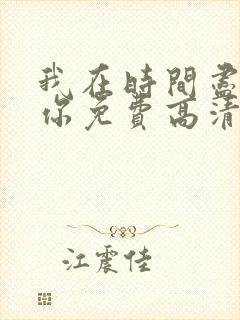 我在時間盡
你免費高清
江震佳